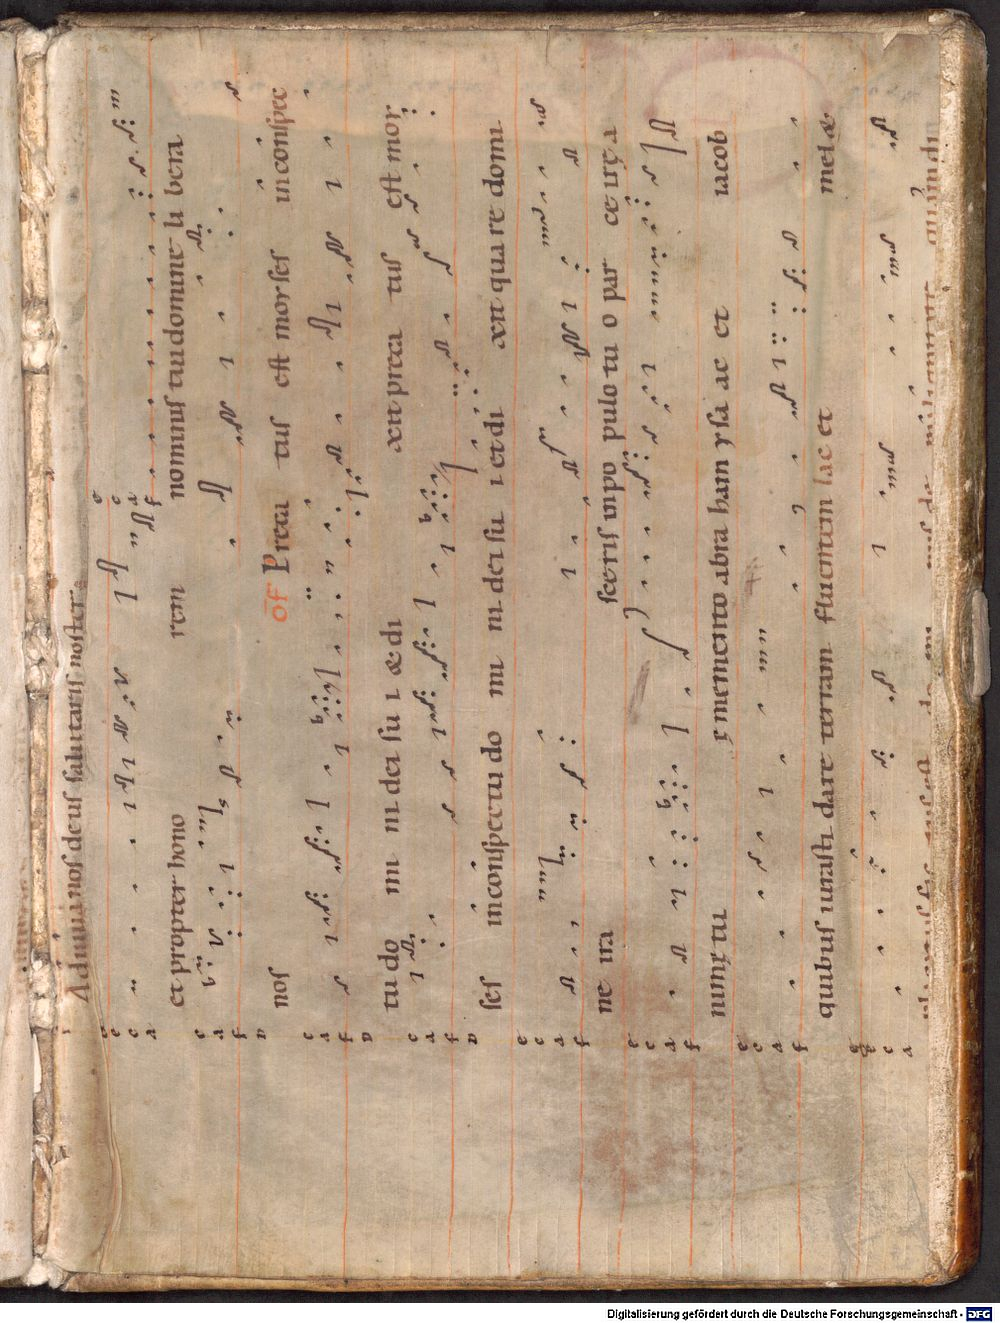 Adiuua nos deus salutaris noster.
et propter hono rem nominis tui domine li bera
nos OF Preca tus est moyses in conspec
tu do mi ni dei su i & di xit preca tus est moy
ses in conspectu do mi ni dei su i et di xit qua re domi
ne ira sceris in po pulo tu o par ce irę a
nimę tu ę memento abra ham ysa ac et iacob
quibus iurasti dare terram fluentem lac et mel &
Digitalisierung gefördert durch die Deutsche Forschungsgemeinschaft - DFG